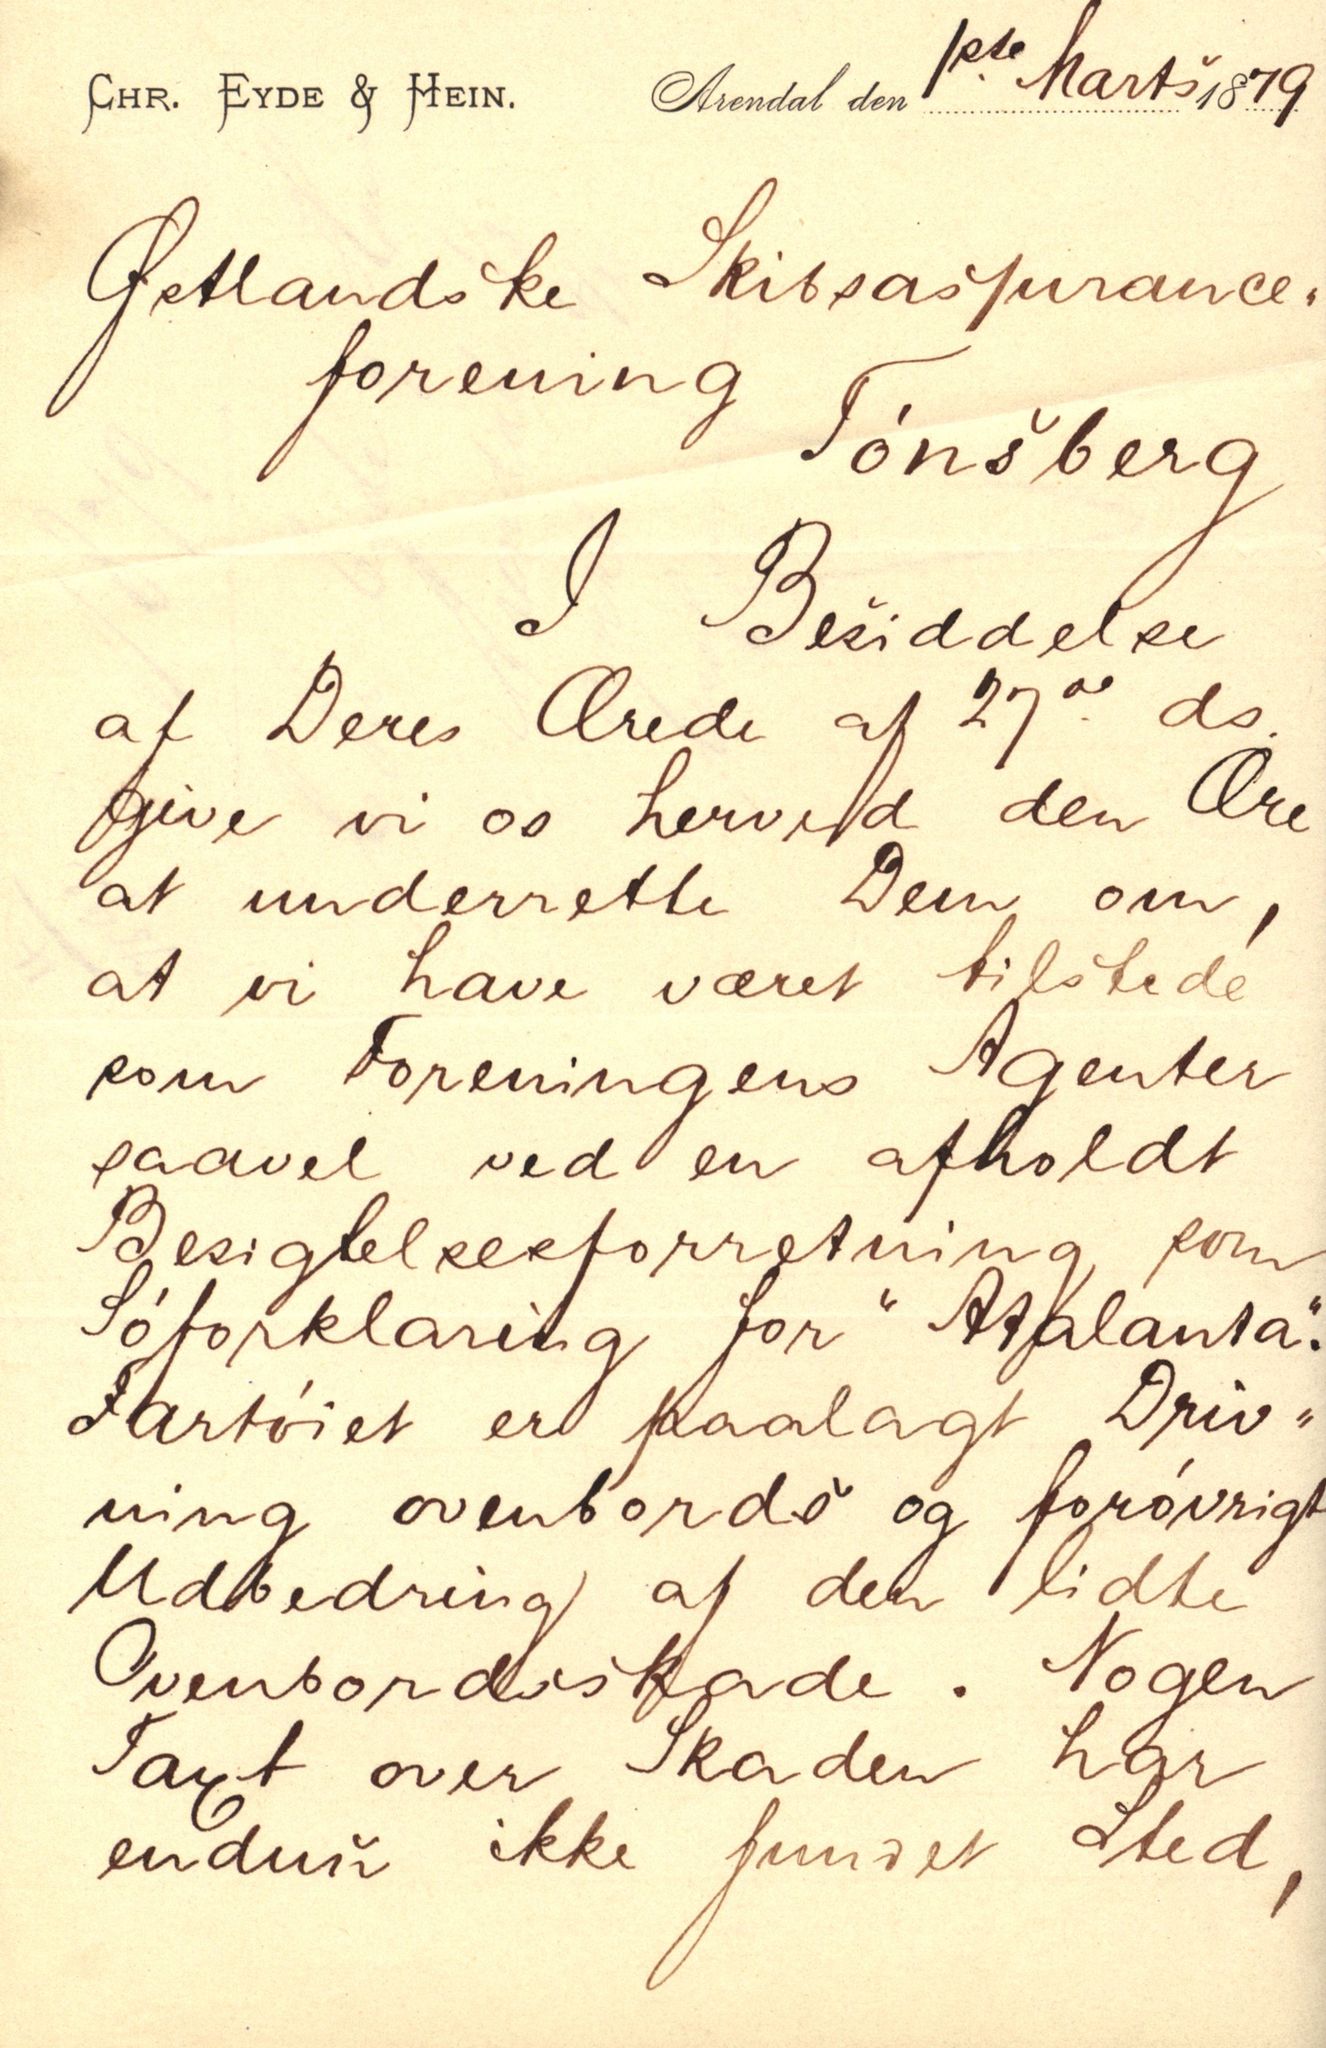 CHR. EYDE & HEIN. Arendal den 1ste Marts 1879
Østlandske Skibsassurance-
forening
Tónsberg
I Besiddelse
af Deres Ærede af 27de ds.
give vi os herved den Ære
at underrette Dem om,
at vi have været tilstede
som Foreningens Agenter
saavel ved en afholdt
Besigtelsesforretning som
Sóforklaring for "Atalanta".
Fartóiet er paalagt Driv-
ning ovenbords og foróvrigt
Udbedring af den lidte
Ovenbordsskade. Nogen
Taxt over Skaden har
endnu ikke fundet Sted,